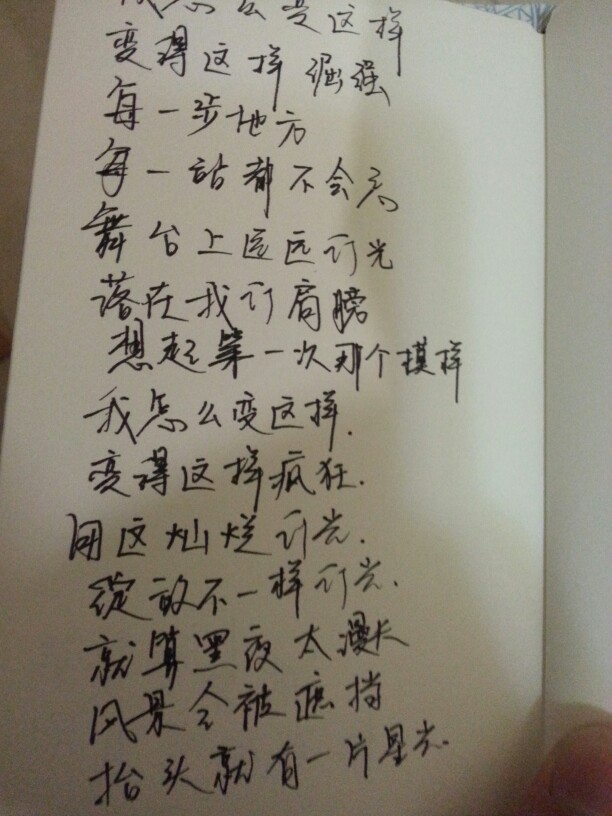 我怎么变这样
变得这样倔强
每一步地方
每一站都不会忘
舞台上远远的光
落在我的肩膀
想起第一次那个模样
我怎么变这样.
变得这样疯狂.
用这灿烂的光.
绽放不一样的光.
就算黑夜太漫长
风景会被遮挡
抬头就有一片星光.